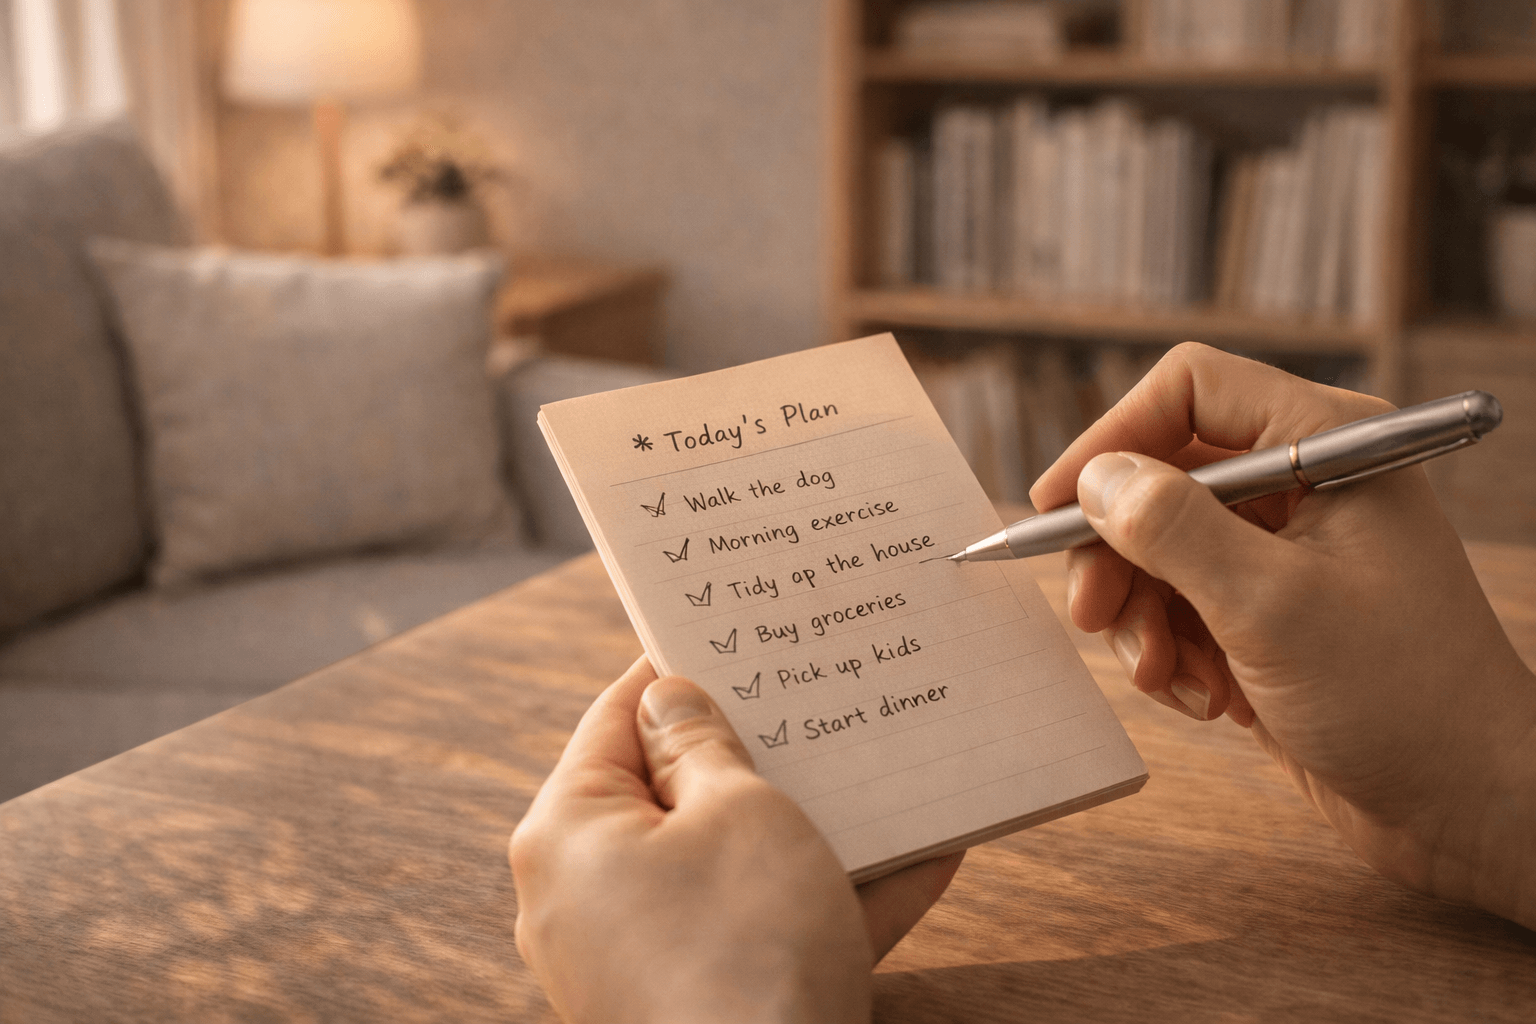 * Today's Plan
✓ Walk the dog
✓ Morning exercise
✓ Tidy ap the house
✓ Buy groceries
✓ Pick up kids
✓ Start dinner